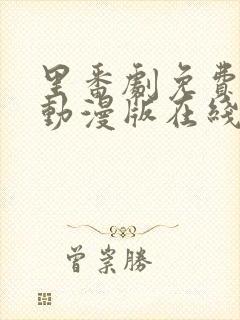 里番劇免費
動漫版在綫
曾崇勝